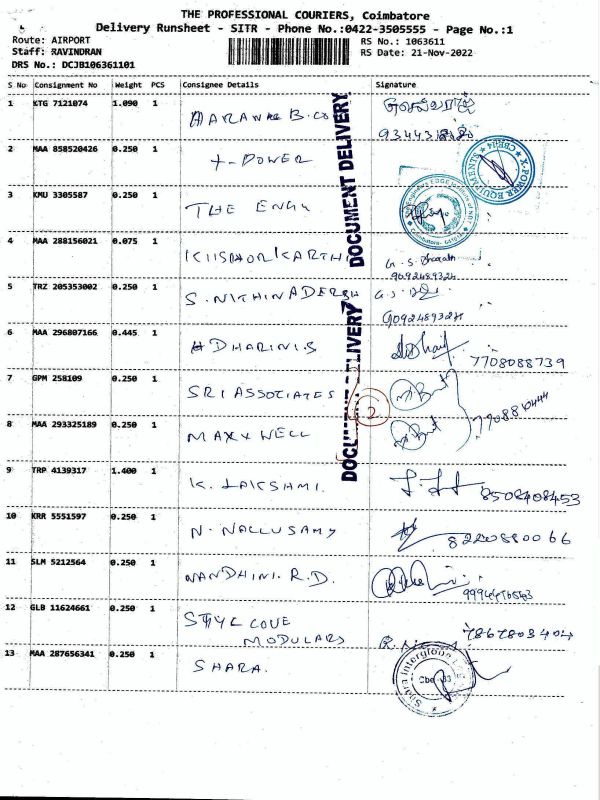 THE PROFESSIONAL COURIERS, Coimbatore
Delivery Runsheet - SITR - Phone No.:0422-3505555 - Page No.:1
Route: AIRPORT
Staff: RAVINDRAN
DRS No.: DCJB106361101
RS No.: 1063611
RS Date: 21-Nov-2022
S No Consignment No Weight PCS Consignee Details Signature
1 KTG 7121074 1.090 1 B. CO
2 MAA 858520426 0.250 1 X-POWER
3 KMU 3305587 0.250 1 THE ENGG
4 MAA 288156021 0.075 1 KIISHORKARTHI
9092489324
5 TRZ 205353002 0.250 1 S. NITHINADERSH
9092489324
6 MAA 296807166 0.445 1 DHARINI.S
7708088739
7 GPM 258109 0.250 1 SRI ASSOCIATES
2
8 MAA 293325189 0.250 1 MAXXWELL
9 TRP 4139317 1.400 1 K. LAKSHMI.
8508408453
10 KRR 5551597 0.250 1 N. NALLUSAMY
8220880066
11 SLM 5212564 0.250 1 NANDHINI. R.D.
12 GLB 11624661 0.250 1 STYL COVE
MODULARS
7867803404
13 MAA 287656341 0.250 1 SHARA.
DOCUMENT DELIVERY
DOCUMENT DELIVERY
X-POWER EQUIPMENTS